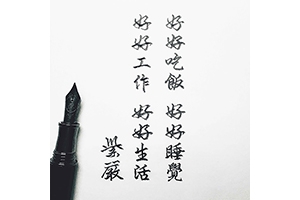 好好吃飯 好好睡覺
好好工作 好好生活
紫嚴